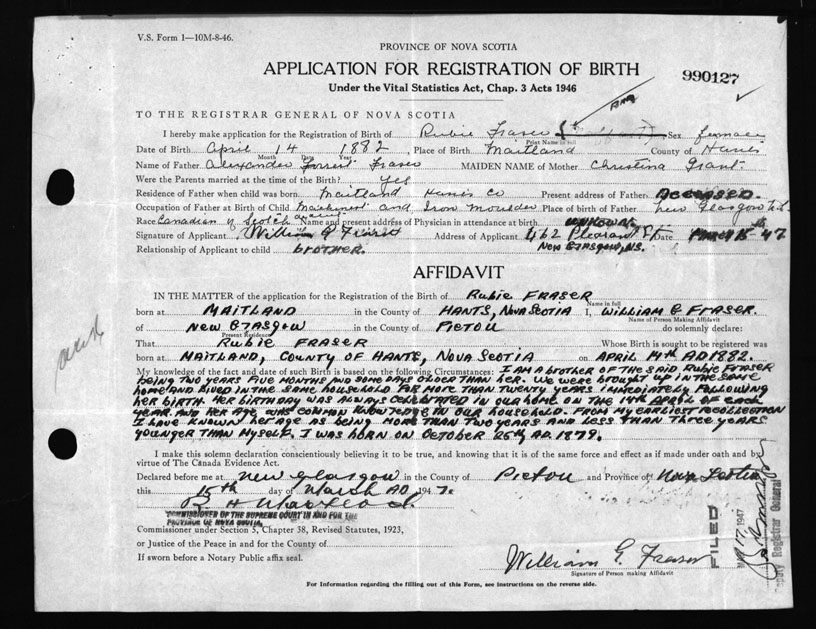 V.S. Form 1—10M-8-46.
PROVINCE OF NOVA SCOTIA
APPLICATION FOR REGISTRATION OF BIRTH
Under the Vital Statistics Act, Chap. 3 Acts 1946
990127
TO THE REGISTRAR GENERAL OF NOVA SCOTIA
I hereby make application for the Registration of Birth of Rubie Fraser Sex female
Print Name in full
Date of Birth April 14 1882, Place of Birth Maitland County of Hants
Month Date Year
Name of Father Alexander Forrest Fraser MAIDEN NAME of Mother Christina Grant
Were the Parents married at the time of the Birth? Yes
Residence of Father when child was born Maitland Hants Co Present address of Father DECEASED.
Occupation of Father at Birth of Child Machinest and Iron Moulder Place of birth of Father New Glasgow N.S.
Race Canadian of Scotch ancest. Name and present address of Physician in attendance at birth UNKNOWN
Signature of Applicant William G Fraser Address of Applicant 462 Pleasant St Date MARCH 15th 47
NEW GLASGOW, N.S.
Relationship of Applicant to child BROTHER.
AFFIDAVIT
IN THE MATTER of the application for the Registration of the Birth of RUBIE FRASER
Name in full
born at MAITLAND in the County of HANTS, NOVA SCOTIA I, WILLIAM G FRASER.
Name of Person Making Affidavit
of NEW GLASGOW in the County of PICTOU do solemnly declare:
Present Residence
That RUBIE FRASER Whose Birth is sought to be registered was
born at MAITLAND, COUNTY OF HANTS, NOVA SCOTIA on APRIL 14TH A.D 1882.
My knowledge of the fact and date of such Birth is based on the following Circumstances: I AM A BROTHER OF THE SAID RUBIE FRASER
BEING TWO YEARS FIVE MONTHS AND SOME DAYS OLDER THAN HER. WE WERE BROUGHT UP IN THE SAME
HOME AND LIVED IN THE SAME HOUSEHOLD FOR MORE THAN TWENTY YEARS IMMEDIATELY FOLLOWING
HER BIRTH. HER BIRTHDAY WAS ALWAYS CELEBRATED IN OUR HOME ON THE 14TH APRIL OF EACH
YEAR AND HER AGE WAS COMMON KNOWLEDGE IN OUR HOUSEHOLD. FROM MY EARLIEST RECOLLECTION
I HAVE KNOWN HER AGE AS BEING MORE THAN TWO YEARS AND LESS THAN THREE YEARS
YOUNGER THAN MYSELF. I WAS BORN ON OCTOBER 25TH A.D. 1879.
I make this solemn declaration conscientiously believing it to be true, and knowing that it is of the same force and effect as if made under oath and by
virtue of The Canada Evidence Act.
Declared before me at New Glasgow in the County of Pictou and Province of Nova Scotia
this 15th day of March AD 1947.
COMMISSIONER OF THE SUPREME COURT IN AND FOR THE
PROVINCE OF NOVA SCOTIA,
Commissioner under Section 5, Chapter 38, Revised Statutes, 1923,
or Justice of the Peace in and for the County of
If sworn before a Notary Public affix seal.
William G. Fraser
Signature of Person making Affidavit
FILED
17 1947
Deputy Registrar General
For Information regarding the filling out of this Form, see instructions on the reverse side.